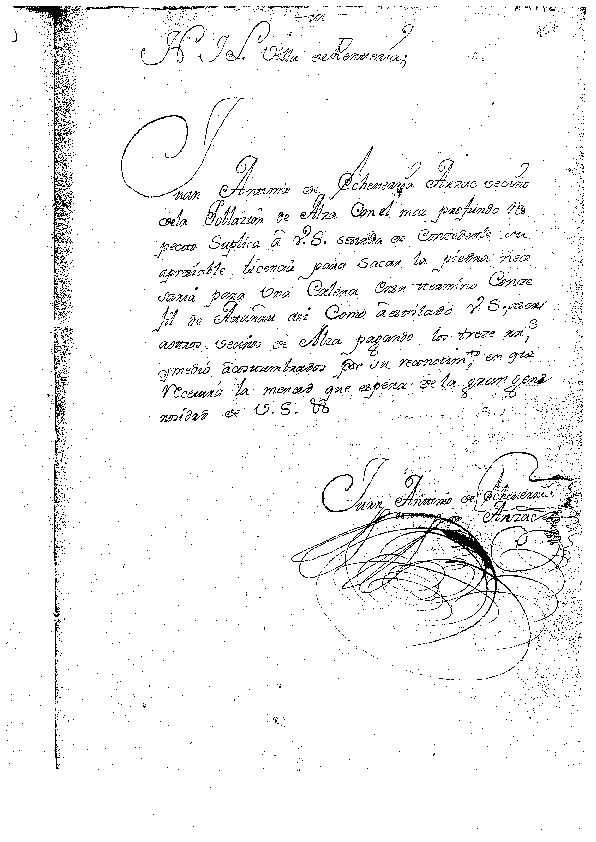 N. I. S. Villa de Renteria;
Juan Antonio de Echeverria Arzac vecino
de la Poblazion de Alza Con el mas profundo res
pecto Suplica â V.S. se sirva de Concederle su
apreziable licencia para Sacar la piedra nece
saria para Una Calera en termino Conce
jil de Como â estilado V.S. con
otros vecinos de Alza pagando los treze rr.s
y medio âcostumbrados por su reconocim.to en que
recevira la merced que espera de la gran gene
rosidad de V.S. &
Juan Antonio de Echeverria
Arzac